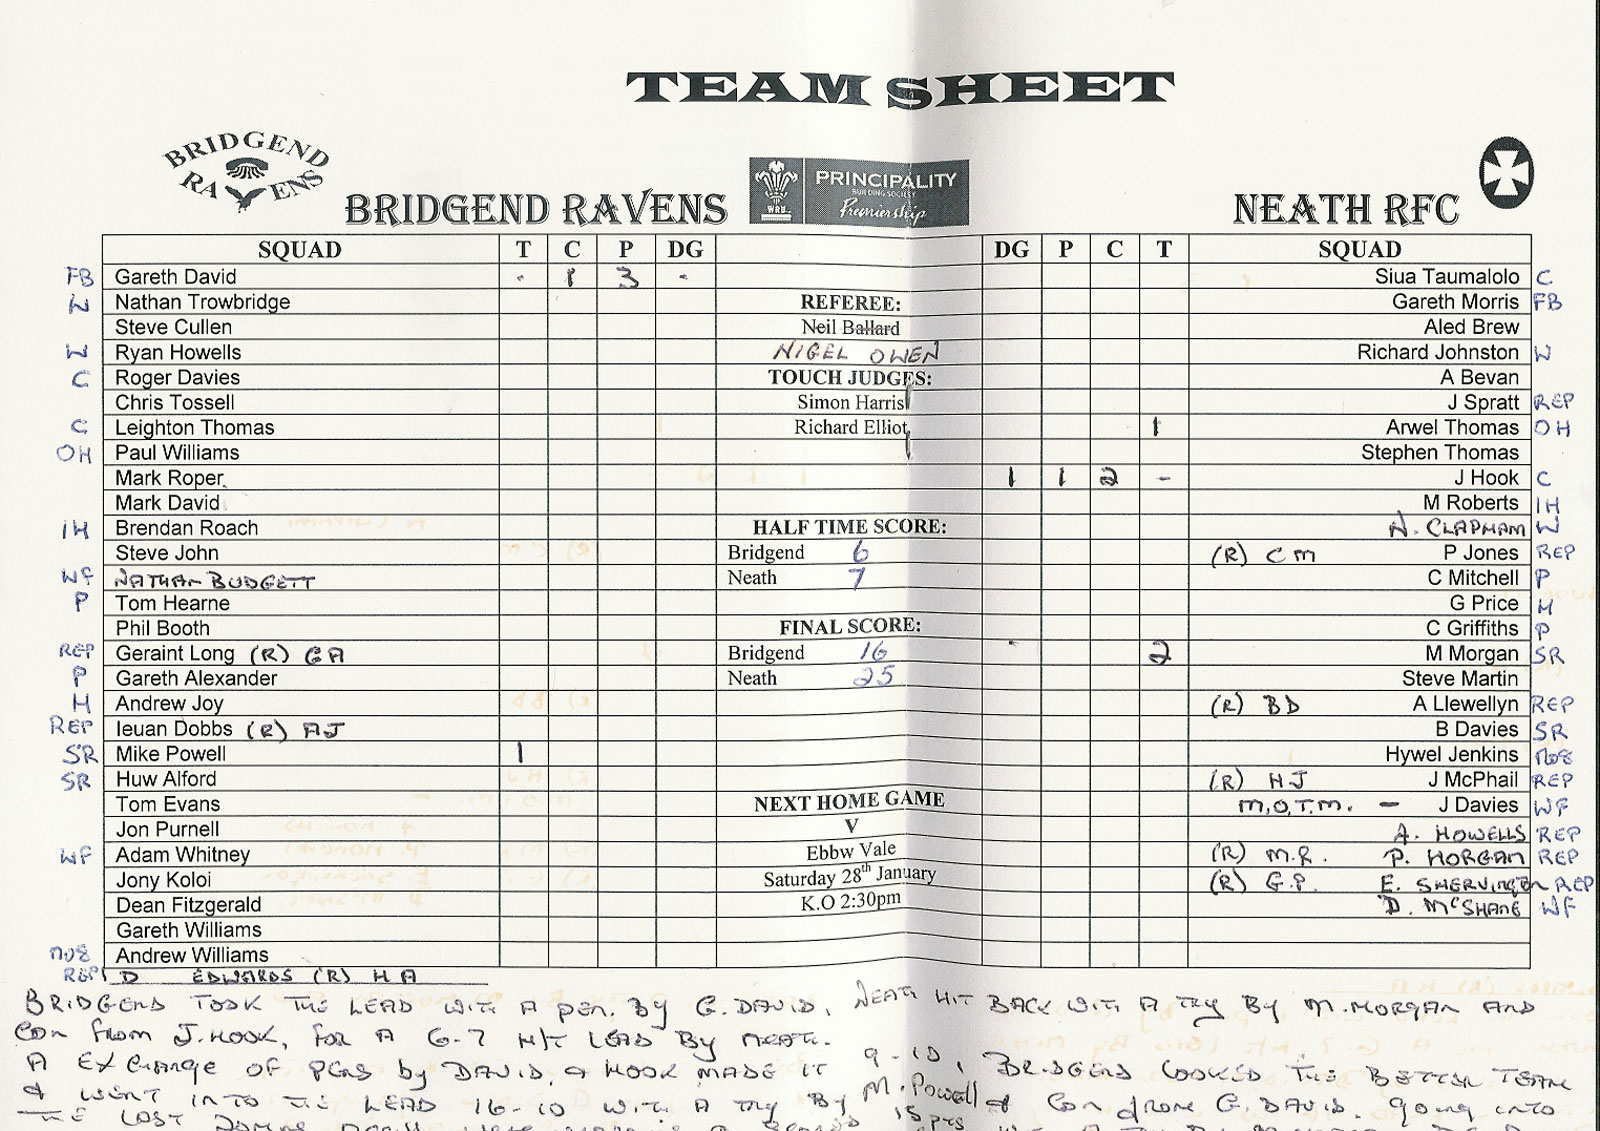 TEAM SHEET
BRIDGEND RAVENS
BRIDGEND RAVENS
WRU PRINCIPALITY BUILDING SOCIETY Premiership
NEATH RFC
SQUAD T C P DG DG P C T SQUAD
FB Gareth David - 1 3 - Siua Taumalolo C
W Nathan Trowbridge REFEREE: Gareth Morris FB
Steve Cullen Neil Ballard Aled Brew
W Ryan Howells NIGEL OWEN Richard Johnston W
C Roger Davies TOUCH JUDGES: A Bevan
Chris Tossell Simon Harris J Spratt REP
C Leighton Thomas Richard Elliot 1 Arwel Thomas OH
OH Paul Williams Stephen Thomas
Mark Roper 1 1 2 - J Hook C
Mark David M Roberts IH
IH Brendan Roach HALF TIME SCORE: N. CLAPHAM W
Steve John Bridgend 6 (R) CM P Jones REP
WF NATHAN BUDGETT Neath 7 C Mitchell P
P Tom Hearne G Price H
Phil Booth FINAL SCORE: C Griffiths P
REP Geraint Long (R) GA Bridgend 16 - 2 M Morgan SR
P Gareth Alexander Neath 25 Steve Martin
H Andrew Joy (R) BD A Llewellyn REP
REP Ieuan Dobbs (R) AJ B Davies SR
SR Mike Powell 1 Hywel Jenkins No8
SR Huw Alford (R) HJ J McPhail REP
Tom Evans NEXT HOME GAME M.O.T.M. - J Davies WF
Jon Purnell V A. HOWELLS REP
WF Adam Whitney Ebbw Vale (R) M.R. P. HORGAN REP
Jony Koloi Saturday 28th January (R) G.P. E. SHERVINGTON REP
Dean Fitzgerald K.O 2:30pm D. McSHANE WF
Gareth Williams
No8 Andrew Williams
REP D EDWARDS (R) HA
BRIDGEND TOOK THE LEAD WITH A PEN. BY G. DAVID, NEATH HIT BACK WITH A TRY BY M. MORGAN AND
CON FROM J. HOOK, FOR A 6-7 H/T LEAD BY NEATH.
A EXCHANGE OF PENS by DAVID, & HOOK MADE IT 9-10, BRIDGEND LOOKED THE BETTER TEAM
& WENT INTO THE LEAD 16-10 WITH A TRY BY M. Powell & CON from G. DAVID. going INTO
THE LAST 15 pts